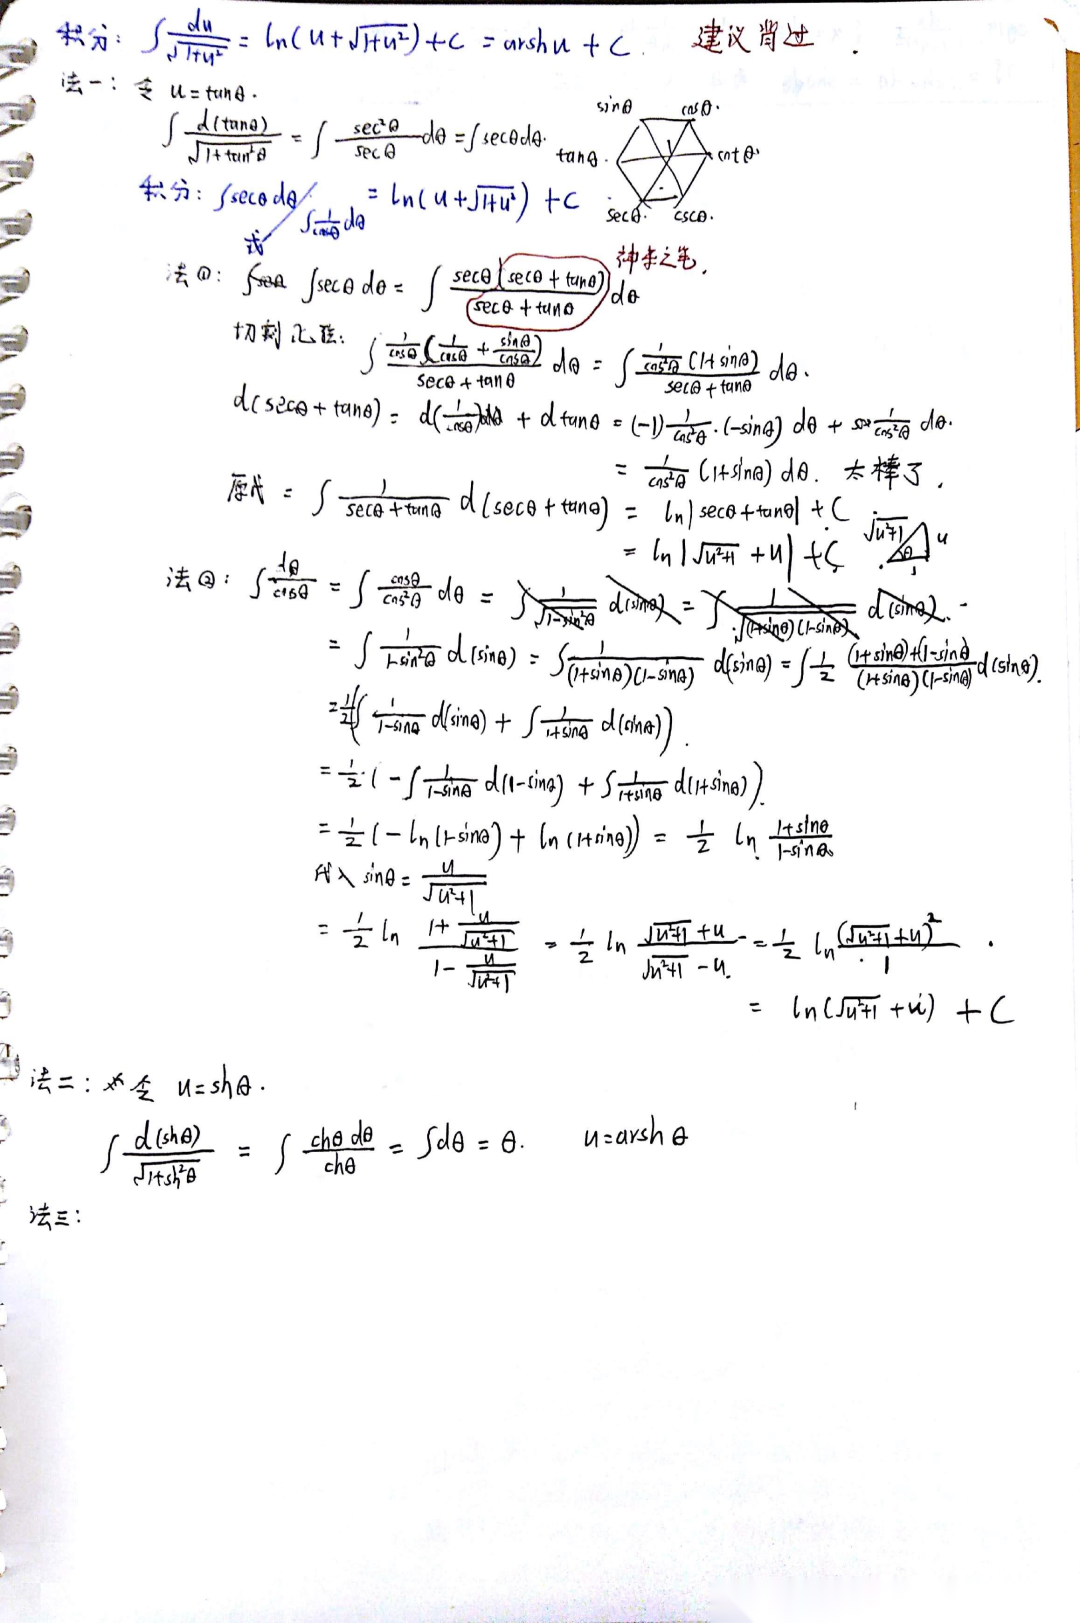 积分: ∫ du/√(1+u²) = ln(u+√(1+u²))+C = arshu + C. 建议背过.
法一: 令 u=tanθ.
∫ d(tanθ)/√(1+tan²θ) = ∫ sec²θ/secθ dθ = ∫secθdθ.
sinθ cosθ.
tanθ. cotθ.
secθ. cscθ.
积分: ∫secθdθ = ln(u+√(1+u²)) +C
或 ∫ 1/cosθ dθ
法①: ∫secθ dθ = ∫ secθ(secθ+tanθ)/(secθ+tanθ) dθ 神来之笔.
切割化弦: ∫ 1/cosθ (1/cosθ + sinθ/cosθ)/(secθ+tanθ) dθ = ∫ 1/cos²θ (1+sinθ)/(secθ+tanθ) dθ.
d(secθ+tanθ) = d(1/cosθ) + dtanθ = (-1) 1/cos²θ·(-sinθ) dθ + 1/cos²θ dθ.
= 1/cos²θ (1+sinθ) dθ. 太棒了.
原式 = ∫ 1/(secθ+tanθ) d(secθ+tanθ) = ln|secθ+tanθ| + C
= ln|√(u²+1) + u| + C
√(u²+1) u θ 1
法②: ∫ dθ/cosθ = ∫ cosθ/cos²θ dθ = ∫ 1/√(1-sin²θ) d(sinθ) = ∫ 1/√((1+sinθ)(1-sinθ)) d(sinθ).
= ∫ 1/(1-sin²θ) d(sinθ) = ∫ 1/((1+sinθ)(1-sinθ)) d(sinθ) = ∫ 1/2 ((1+sinθ)+(1-sinθ))/((1+sinθ)(1-sinθ)) d(sinθ).
= 1/2(∫ 1/(1-sinθ) d(sinθ) + ∫ 1/(1+sinθ) d(sinθ)).
= 1/2·(-∫ 1/(1-sinθ) d(1-sinθ) + ∫ 1/(1+sinθ) d(1+sinθ)).
= 1/2 (-ln(1-sinθ) + ln(1+sinθ)) = 1/2 ln (1+sinθ)/(1-sinθ)
代入 sinθ = u/√(u²+1)
= 1/2 ln (1+u/√(u²+1))/(1-u/√(u²+1)) = 1/2 ln (√(u²+1)+u)/(√(u²+1)-u) = 1/2 ln (√(u²+1)+u)²/1.
= ln(√(u²+1)+u) + C
法二: 令 u=shθ.
∫ d(shθ)/√(1+sh²θ) = ∫ chθ dθ/chθ = ∫dθ = θ. u=arshθ
法三: